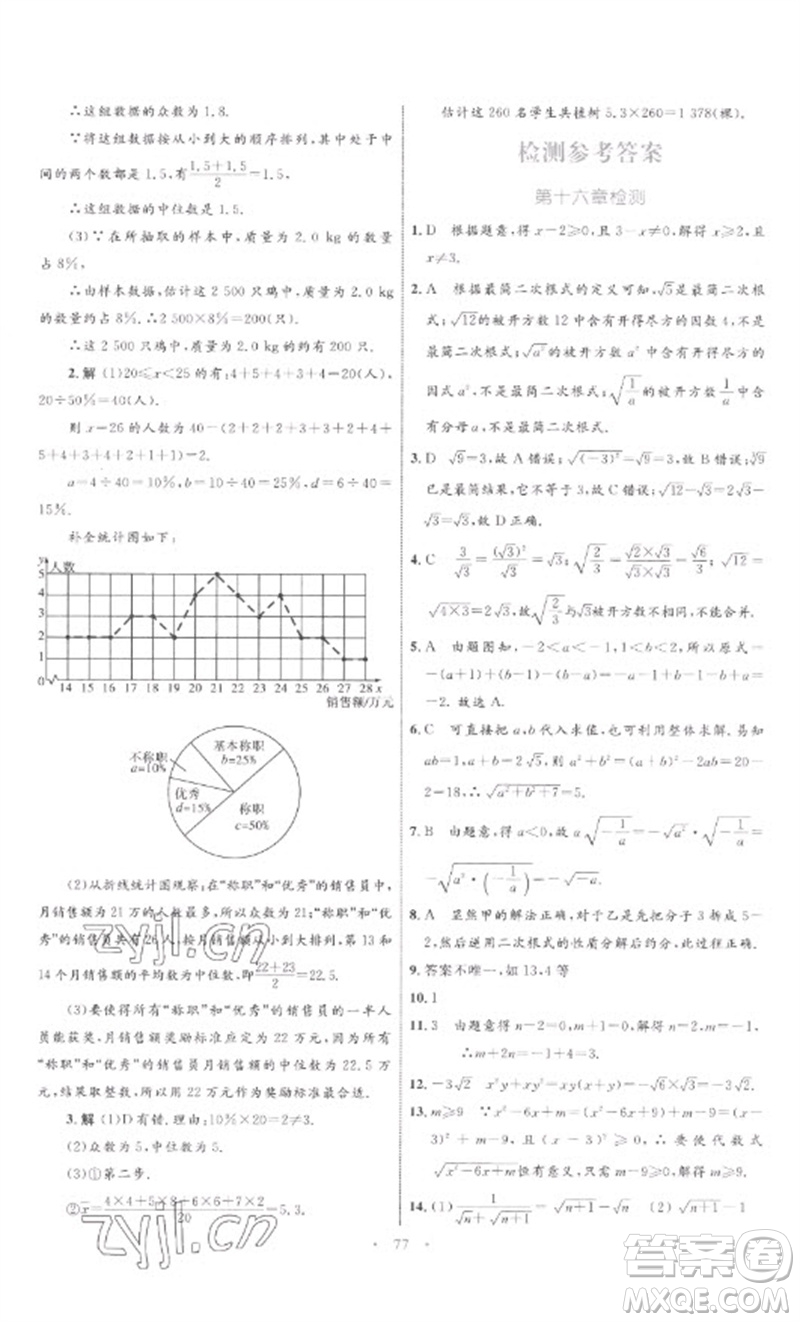 ∴这组数据的众数为 1.8.
∵将这组数据按从小到大的顺序排列,其中处于中
间的两个数都是 1.5,有(1.5+1.5)/2=1.5,
∴这组数据的中位数为 1.5.
(3)∵在所抽取的样本中,质量为 2.0 kg 的数量
占 8%,
∴由样本数据,估计这 2 500 只鸡中,质量为 2.0 kg
的数量约占 8%.∴2 500×8%=200(只).
∴这 2 500 只鸡中,质量为 2.0 kg 的约有 200 只.
2.解 (1)20≤x<25 的有:4+5+4+3+4=20(人),
20÷50%=40(人).
则 x=26 的人数为 40-(2+2+2+3+3+2+4+
5+4+3+4+2+1+1)=2.
a=4÷40=10%,b=10÷40=25%,d=6÷40=
15%.
补全统计图如下:
y/人数
5
4
3
2
1
0 14 15 16 17 18 19 20 21 22 23 24 25 26 27 28 x
销售额/万元
不称职 a=10%
基本称职 b=25%
优秀 d=15%
称职 c=50%
(2)从折线统计图观察:在“称职”和“优秀”的销售员中,
月销售额为 21 万的人数最多,所以众数为 21;“称职”和“优
秀”的销售员共有 26 人,按月销售额从小到大排列,第 13 和
14 个月销售额的平均数为中位数,即(22+23)/2=22.5.
(3)要使得所有“称职”和“优秀”的销售员的一半人
员能获奖,月销售额奖励标准应定为 22 万元,因为所
有“称职”和“优秀”的销售员月销售额的中位数为 22.5 万
元,结果取整数,所以月销售额定为 22 万元作为奖励标准最合适.
3.解 (1)D 有错.理由:10%×20=2≠3.
(2)众数为 5,中位数为 5.
(3)①第二步.
②x̄=(4×4+5×8+6×6+7×2)/20=5.3,
估计这 260 名学生共植树 5.3×260=1 378(棵).
检测参考答案
第十六章检测
1.D 根据题意,得 x-2≥0,且 x-3≠0,解得 x≥2,且
x≠3.
2.A 根据最简二次根式的定义可知,√5是最简二次根
式;√12的被开方数 12 中含有开得尽方的因数 4,不是
最简二次根式;√a³的被开方数 a³ 中含有开得尽方的
因式 a²,不是最简二次根式;√(1/a)的被开方数中含
有分母为 a,不是最简二次根式.
3.D √9=3,故 A 错误;√(-3)²=√9=3,故 B 错误;∛9
已是最简结果,它不可能是 3,故 C 错误;√12-√3=2√3
-√3=√3,故 D 正确.
4.C 3/√3=(√3)²/√3=√3;√(2/3)=√2×√3/(√3×√3)=√6/3;√12=
√4×3=2√3,故√12与√(2/3)被开方数不相同,不能合并.
5.A 由题图知,-2<a<-1,1<b<2,所以原式=
-(a+1)+(b-1)-(b-a)=-a-1+b-1-b+a=
-2.故选 A.
6.C 可直接把 a,b 代入求值,也可利用整体求解.由已知
ab=1,a+b=2√5,则 a²+b²=(a+b)²-2ab=20
-2=18,∴√(a²+b²+7)=5.
7.B 由题意,得 a<0,故 a√(-1/a)=-√a²·√(-1/a)=
-√(a²·(-1/a))=-√-a.
8.A 显然甲的解法正确,对于乙是先把分子 3 拆成 5-
2,然后逆用二次根式的性质分解因式,也正确.
9.答案不唯一,如 13,4 等
10.1
11.3 由题意得 n-2=0,m+1=0,解得 n=2,m=-1.
∴m+2n=-1+4=3.
12.-3√2 x³y²+x²y³=x²y²(x+y)=-√6×√3=-3√2.
13.m≥9 ∵x²-6x+m=x²-6x+9+m-9=(x-
3)²+m-9,且(x-3)²≥0,∴要使代数式
√(x²-6x+m)有意义,则 m-9≥0,解得 m≥9.
14.(1)1/(√n+√(n+1))=√(n+1)-√n (2)√(n+1)-1
· 77 ·
zyjl.cn
zyjl.cn
答案圈
MXQE.COM